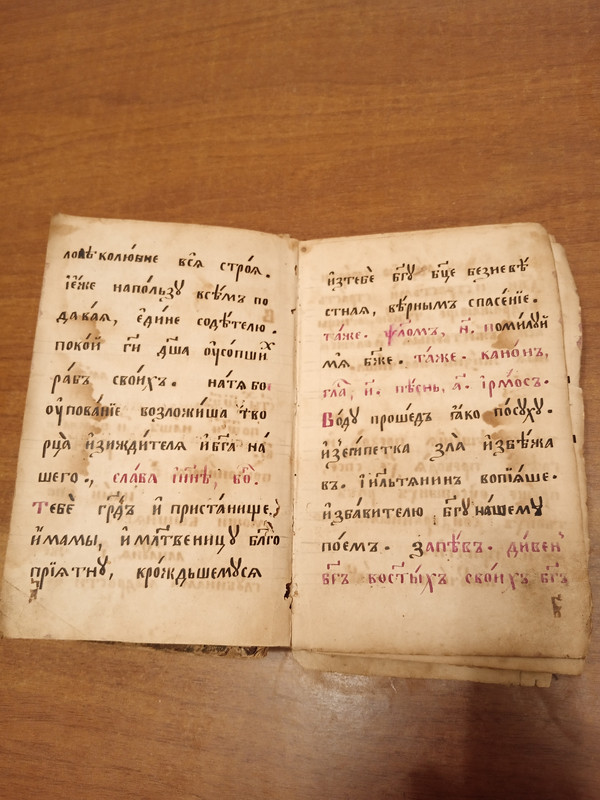 ловѣколюбне всѧ̀ строѧ́.
і҆є҆́же напо́льзу всѣ́мъ по
дава́ѧ, є҆ди́не содѣ́телю.
поко́й гд҃и дш҃а оу҆со́пшиⷯ
ра́бъ свои́хъ. на́тѧ бо
оу҆пова́нїе возложи́ша тво
рца̀ и҆зижди́телѧ и҆бг҃а на́
шего., сла́ва ны́нѣ, бо̑.
Тебѐ гра́дъ и҆ приста́нище,
и҆́мамы, и҆мл҃твеницу бл҃го
прїѧ́тну, кро́ждьшемусѧ
и҆зтебѐ бг҃у бц҃е безневѣ́
стнаѧ, вѣ́рнымъ спасе́нїе.
та́же. ѱло́мъ, н҃. поми́луй
мѧ̀ бж҃е. та́же. кано́нъ,
гла̑, и҃. пѣ́снь, а҃. і҆рмо́съ.
Во́ду проше́дъ ꙗ҆́ко посу́ху.
и҆зъе҆ги́петка зла̀ и҆збѣ́жа
въ. і҆и҃льтѧнинъ вопїѧ́ше.
и҆зба́вителю бг҃у на́шему
пое́мъ. запѣ́въ. ди́вен
бг҃ъ восты́хъ свои́хъ бг҃ъ